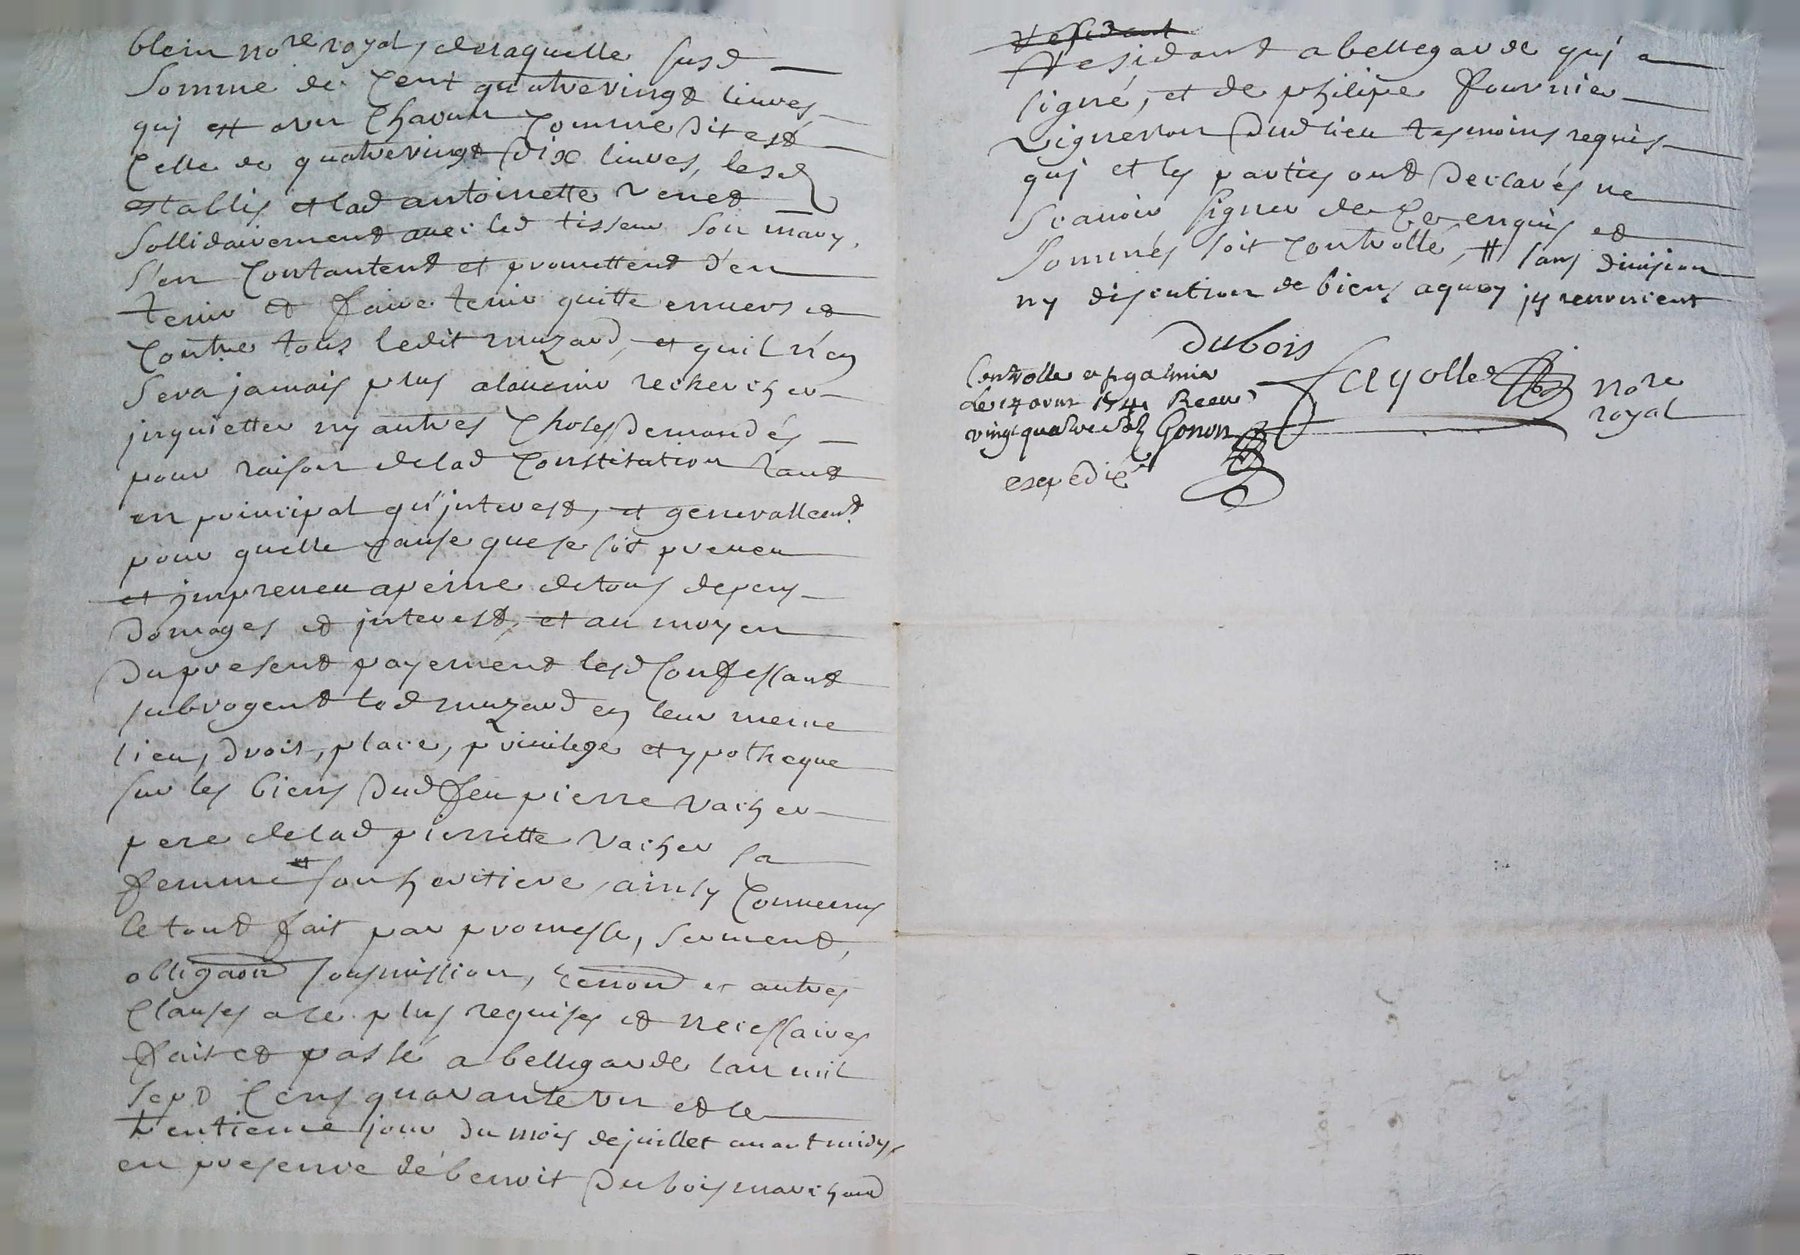 blein no.re royal, de laquelle susd
somme de cent quatrevingt livres
qui est avec chacun comme dit est
celle de quatrevingt dix livres, lesd
establis et lad antoinette venet
sollidairement avec led tisseur son mary,
s'en contantent et promettent d'en
tenir et faire tenir quitte envers et
contre tous ledit muzard, et quil n'en
sera jamais plus alavenir rechercher
jnquietter ny autres choses demandés
pour raison delad constitution tant
en principal qu'jnterest, et generallem.t
pour quelle cause que se soit preveu
et jmpreveu apeine de tous depens
domages et jnterest, et au moyen
du present payement lesd confessant
subrogent led muzard en leur meme
lieu, droit, place, privilege et ypotheque
sur les biens dud feu pierre vacher
pere delad pierrette vacher sa
femme # son heritiere, ainsy convenus
le tout fait par promesse, serment,
obligaon sousmission, renon et autres
clauses a ce plus requises et necessaires
fait et passé a bellegarde lan mil
sept cens quarante un et le
trentieme jour du mois de juillet avant midy,
en presence de benoit dubois marchand
residant a bellegarde qui a
signé, et de philipe fournier
vigneron dud lieu tesmoins requis
qui et les parties ont declarés ne
scavoir signer de ce enquis et
sommés soit controllé, # sans division
ny discution de biens aquoy js renoncent
Dubois
Controllé a st galmier
le 14 aout 1741 Receu
vingt quatre sols Gonon
fayolle no.re
royal
expedié